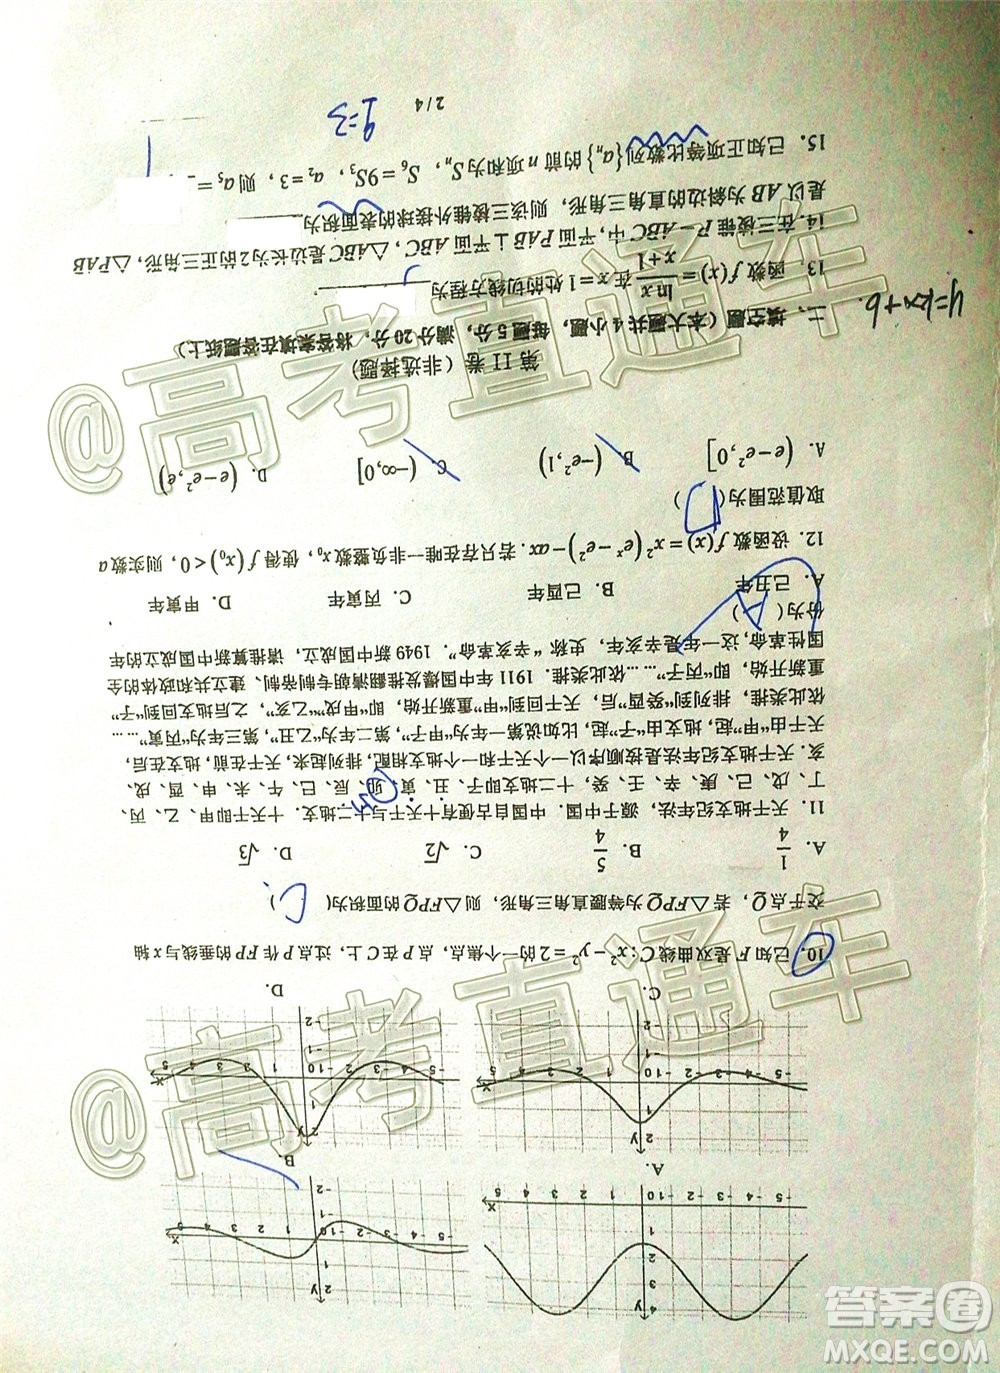 A.
B.
C.
D.
10. 已知F是双曲线C:x²-y²=2的一个焦点，点P在C上，过点P作FP的垂线与x轴
交于点Q，若△FPQ为等腰直角三角形，则△FPQ的面积为( C )
A. 1/4 B. 5/4 C. √2 D. √3
11. 天干地支纪年法，源于中国. 中国自古便有十天干与十二地支. 十天干即甲、乙、丙、
丁、戊、己、庚、辛、壬、癸，十二地支即子、丑、寅、卯、辰、巳、午、未、申、酉、戌、
亥. 天干地支纪年法是按顺序以一个天干和一个地支相配，排列起来，天干在前，地支在后，
天干由“甲”起，地支由“子”起，比如说第一年为“甲子”，第二年为“乙丑”，第三年为“丙寅”……
依此类推，排列到“癸酉”后，天干回到“甲”重新开始，即“甲戌”“乙亥”，之后地支回到“子”
重新开始，即“丙子”……依此类推. 1911年中国爆发推翻清朝专制帝制、建立共和政体的全
国性革命，这一年是辛亥年，史称“辛亥革命”. 1949年新中国成立，请推算新中国成立的年
份为( A )
A. 己丑年 B. 己酉年 C. 丙寅年 D. 甲寅年
12. 设函数f(x)=x²(eˣ-e²)-ax. 若只存在唯一非负整数x₀，使得f(x₀)<0，则实数a
取值范围为( D )
A. (e-e²,0] B. (-e²,1) C. (-∞,0] D. (e-e²,e)
第II卷（非选择题）
二、填空题（本大题共4小题，每题5分，满分20分，将答案填在答题纸上）
13. 函数f(x)=ln x/(x+1)在x=1处的切线方程为
y=kx+b.
14. 在三棱锥P-ABC中，平面PAB⊥平面ABC，△ABC是边长为2的正三角形，△PAB
是以AB为斜边的直角三角形，则该三棱锥外接球的表面积为
15. 已知正项等比数列{aₙ}的前n项和为Sₙ，S₆=9S₃，a₂=3，则a₅=
q=3
2/4
@高考直通车
@高考直通车
答案圈
MXQE.COM